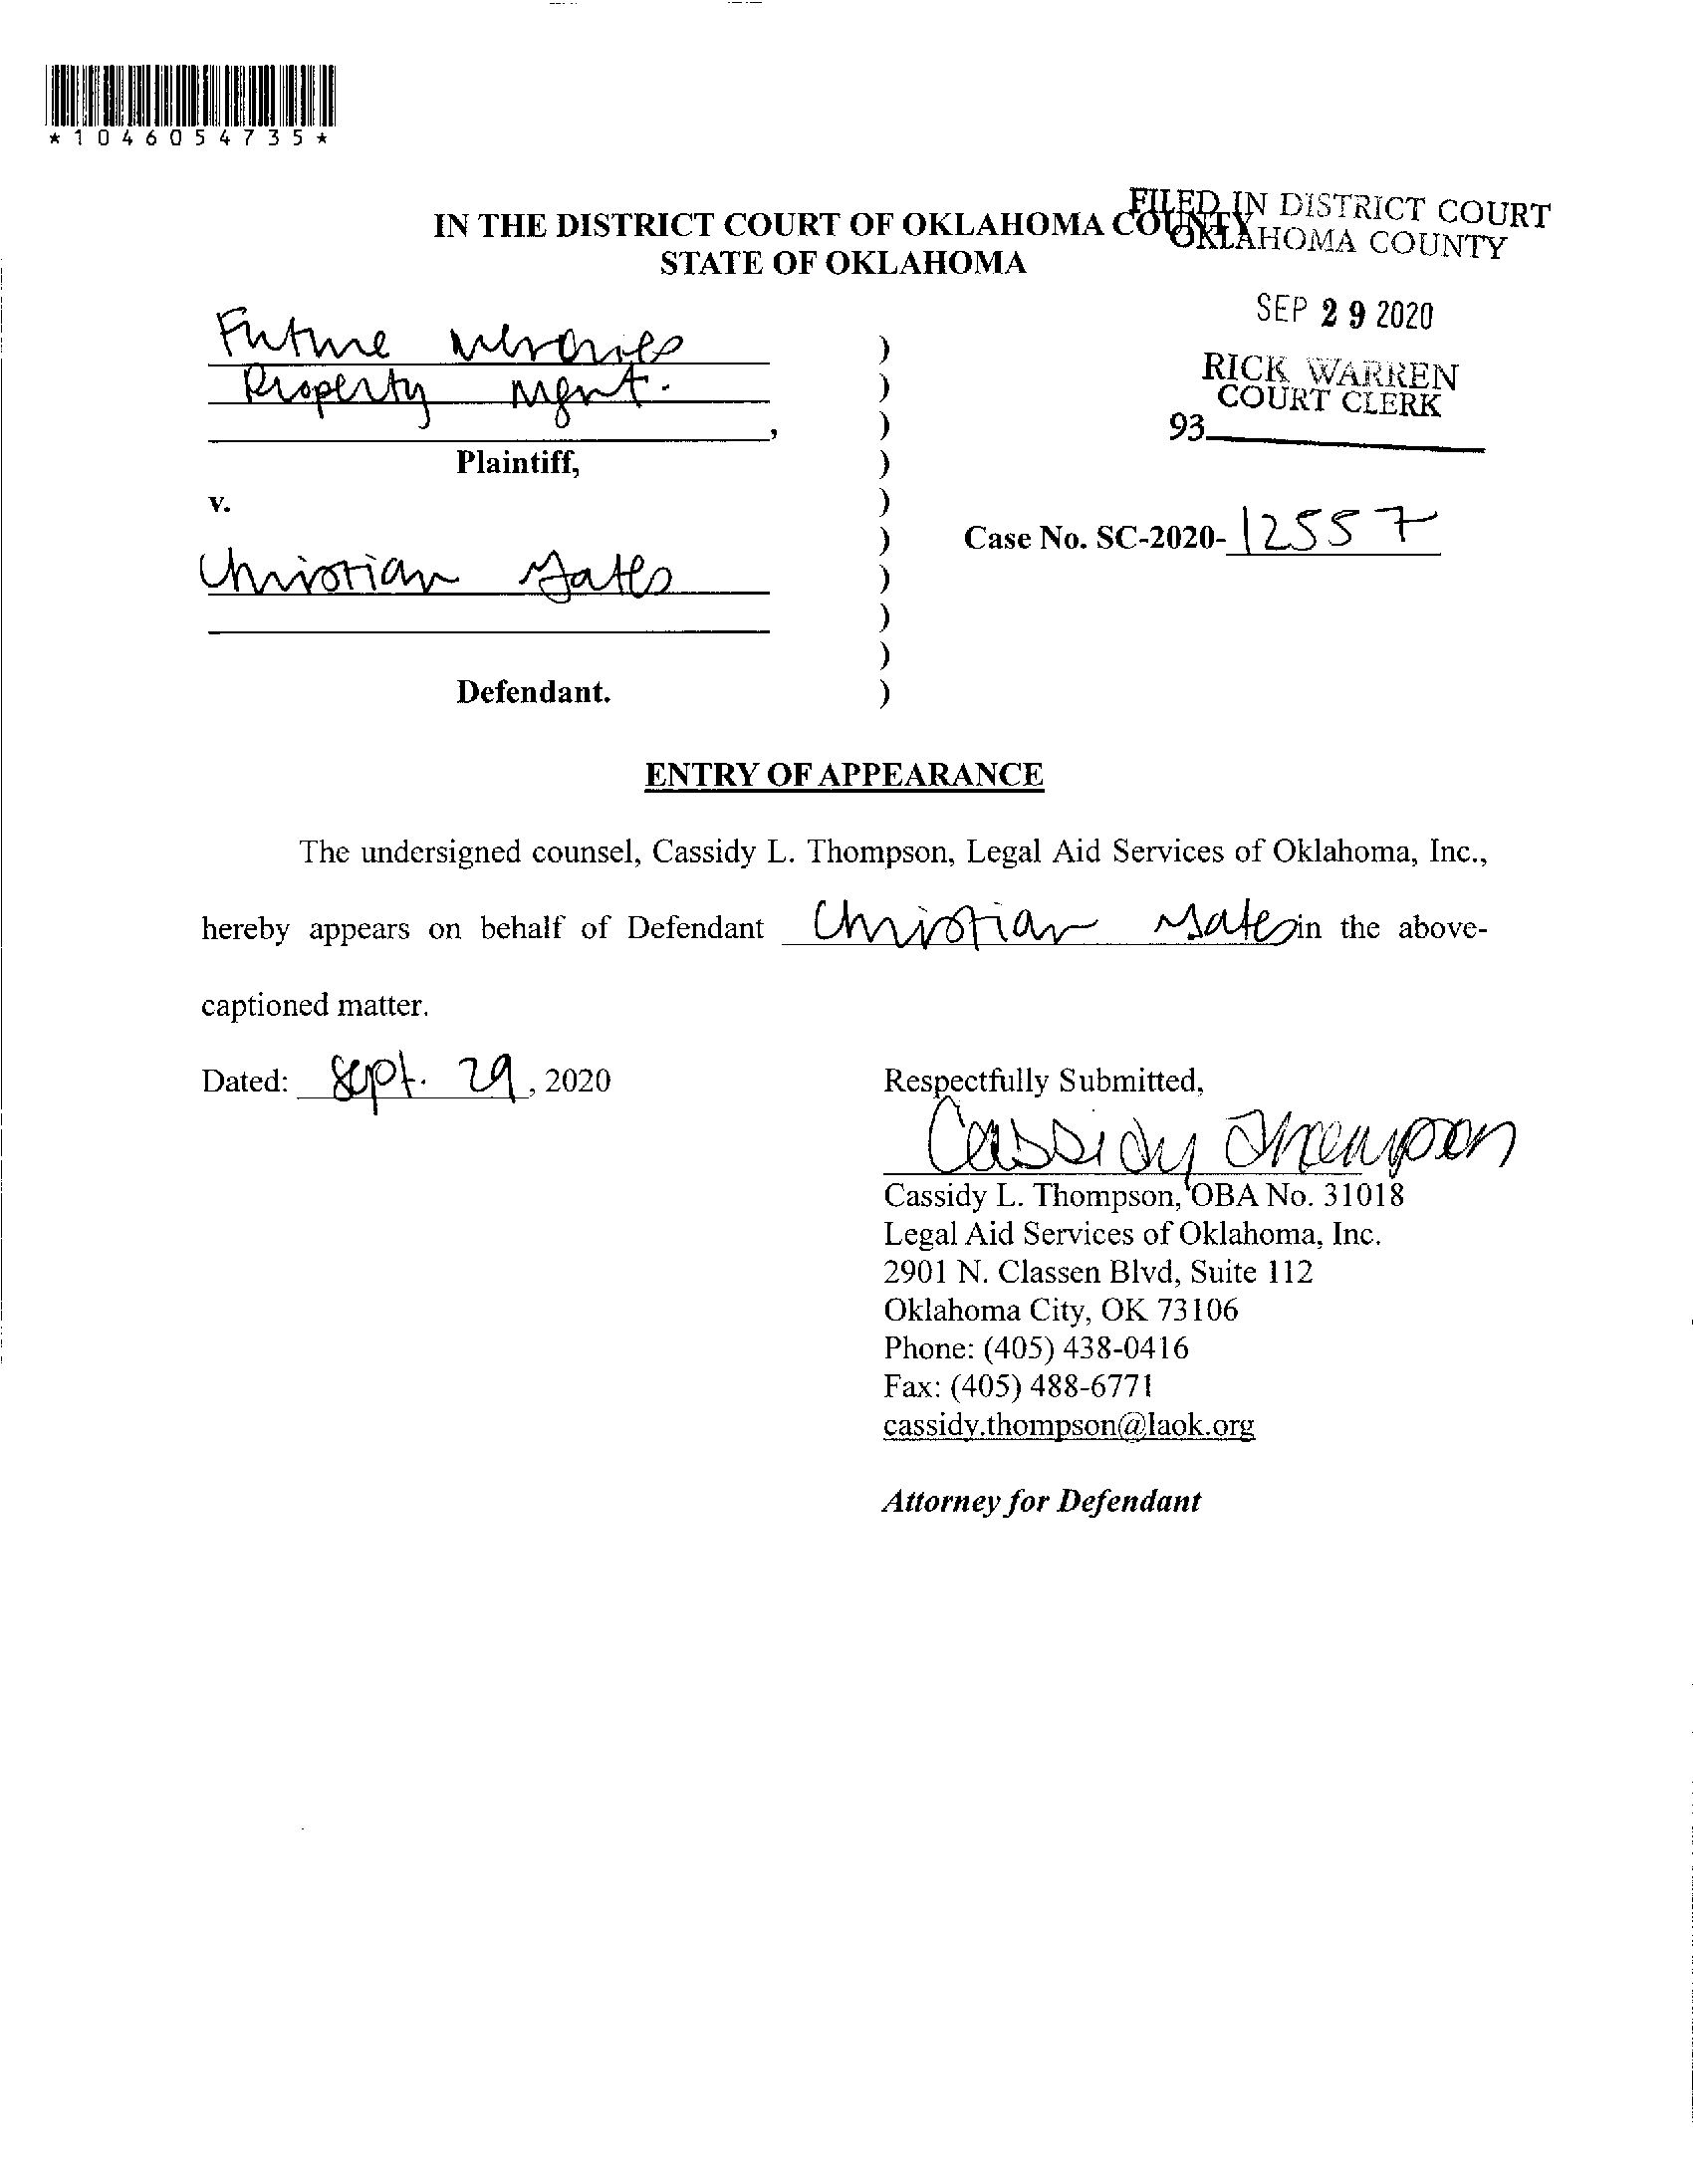 *1046054735*
IN THE DISTRICT COURT OF OKLAHOMA COUNTY
STATE OF OKLAHOMA
FILED IN DISTRICT COURT
OKLAHOMA COUNTY
SEP 29 2020
RICK WARREN
COURT CLERK
93
Future
Property Mgmt.
,
Plaintiff,
v.
Case No. SC-2020-12557
Christian Yates
Defendant.
ENTRY OF APPEARANCE
The undersigned counsel, Cassidy L. Thompson, Legal Aid Services of Oklahoma, Inc.,
hereby appears on behalf of Defendant Christian Yates in the above-
captioned matter.
Dated: Sept. 29, 2020
Respectfully Submitted,
Cassidy Thompson
Cassidy L. Thompson, OBA No. 31018
Legal Aid Services of Oklahoma, Inc.
2901 N. Classen Blvd, Suite 112
Oklahoma City, OK 73106
Phone: (405) 438-0416
Fax: (405) 488-6771
cassidy.thompson@laok.org
Attorney for Defendant